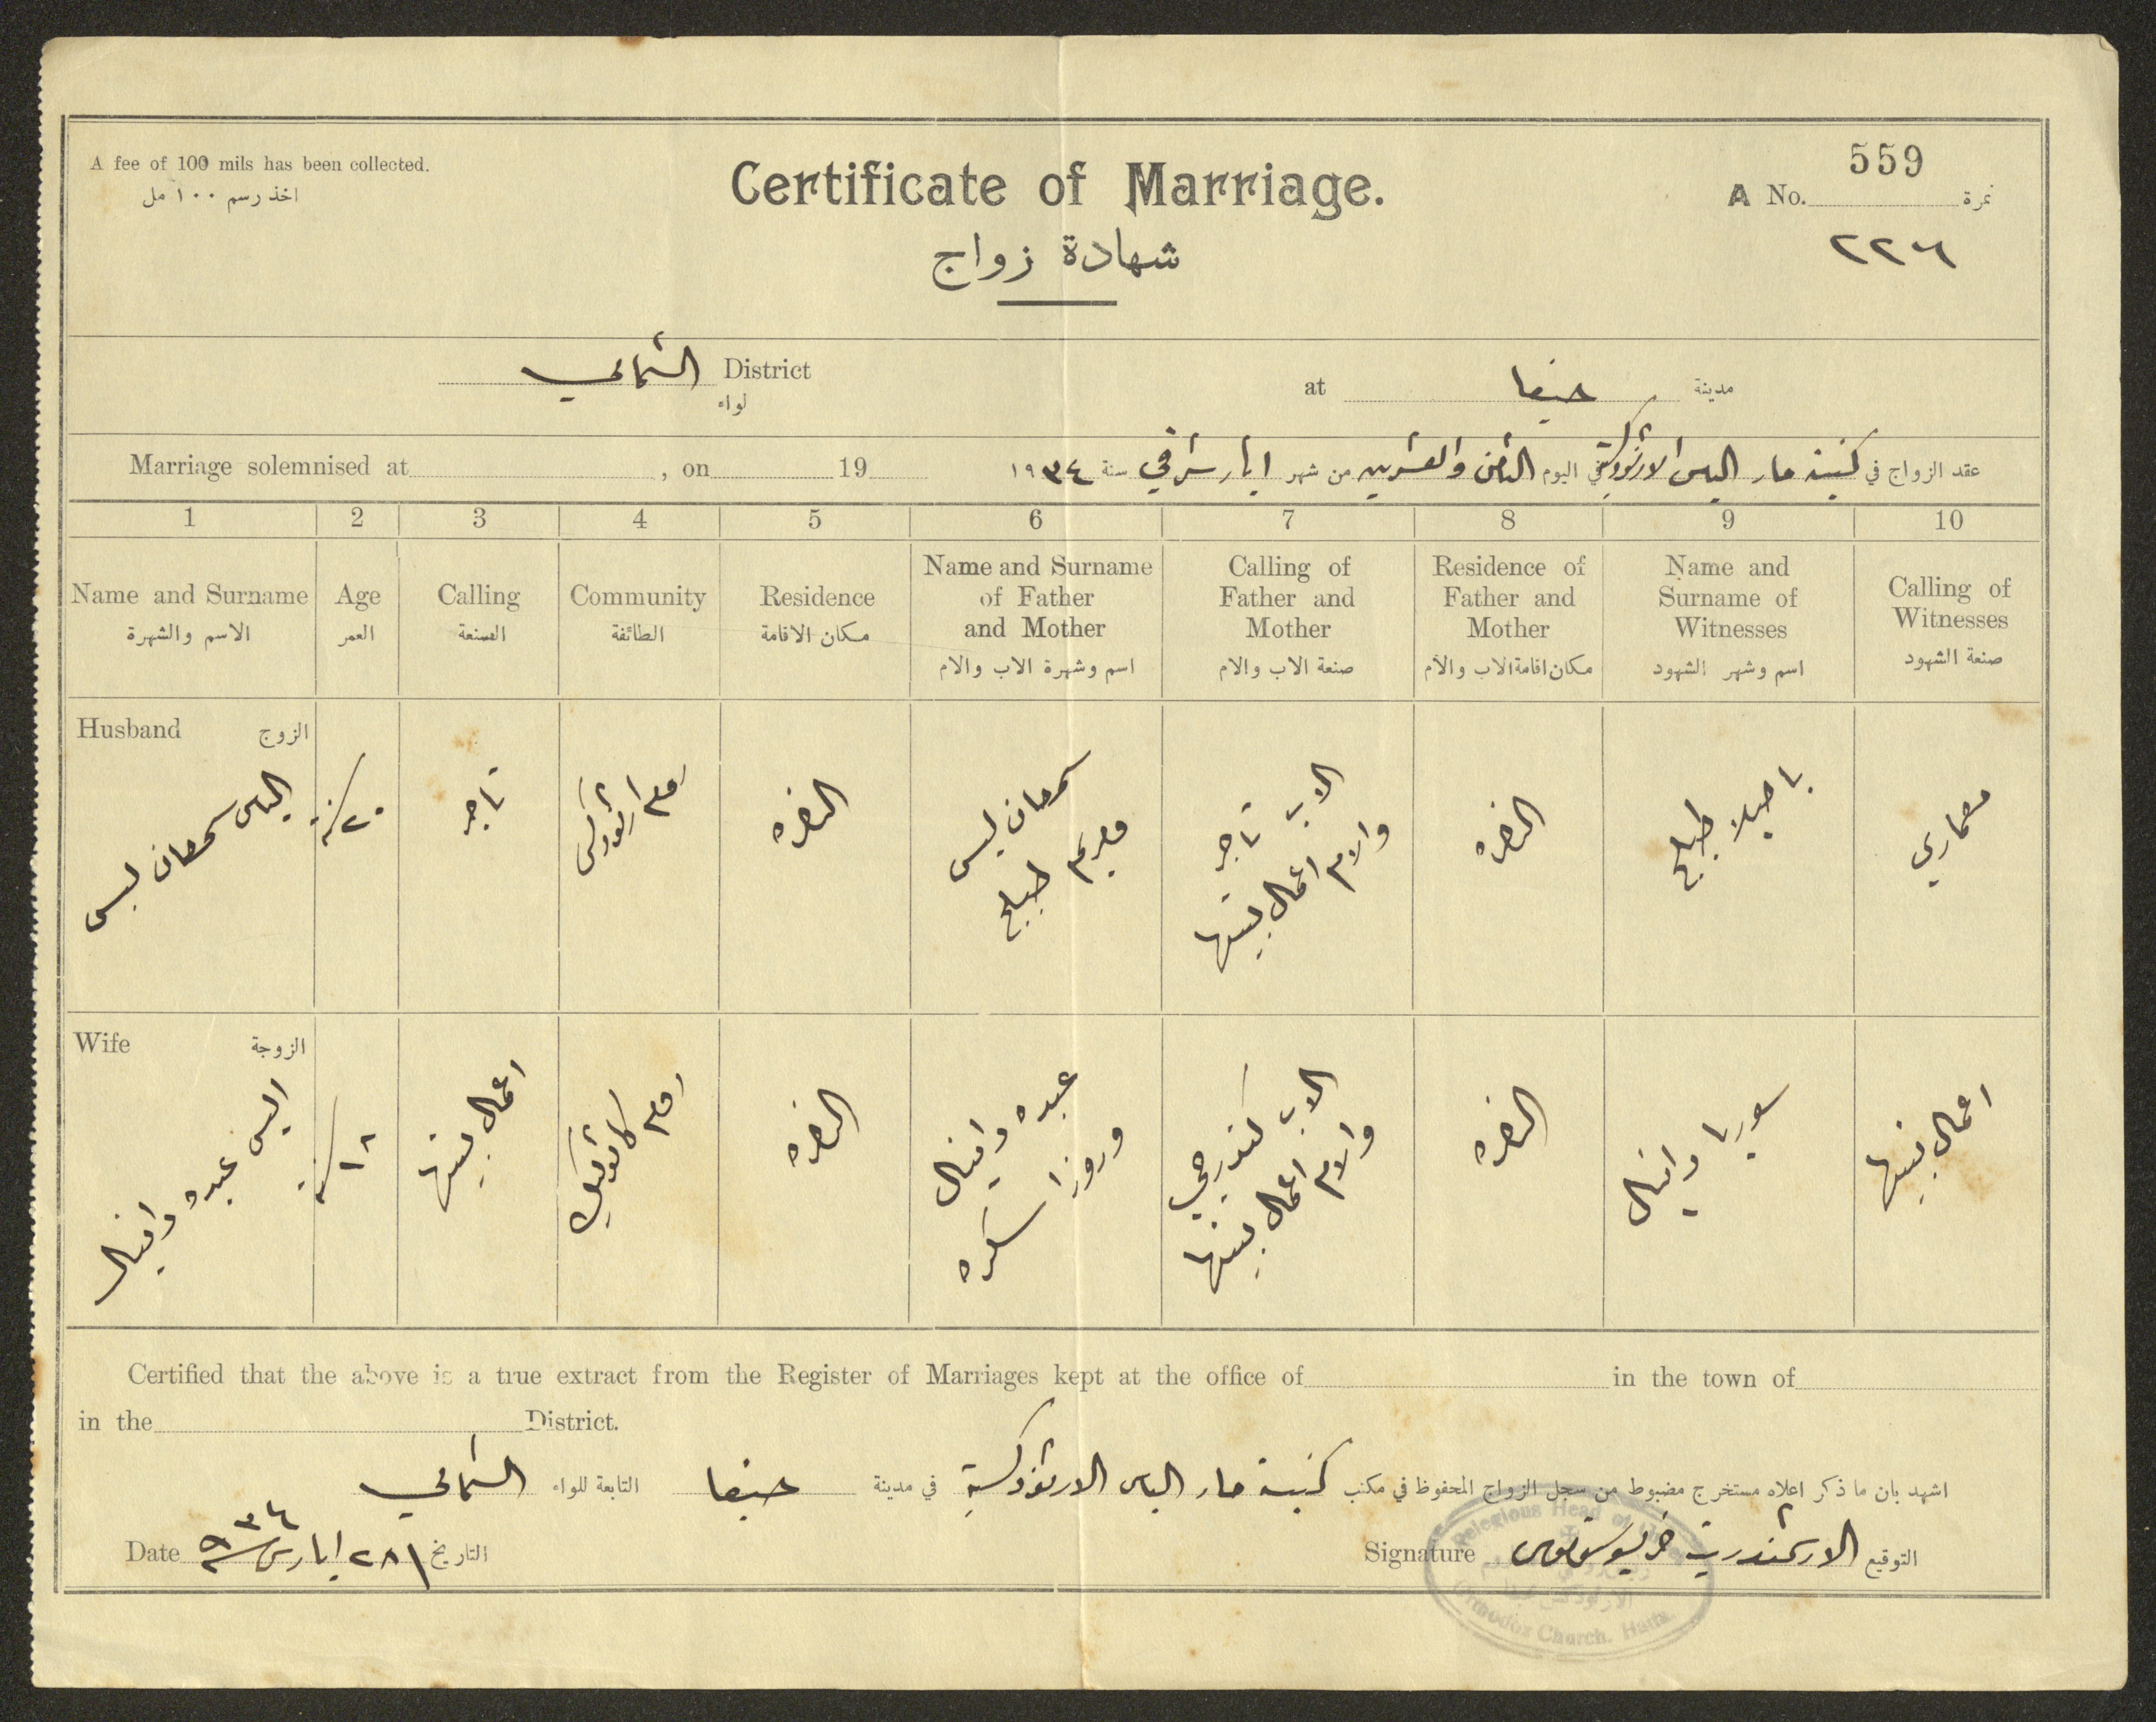 A fee of 100 mils has been collected.
اخذ رسم ١٠٠ مل
Certificate of Marriage.
شهادة زواج
559
A No. نمرة
٢٢٦
الشمالي District
لواء
at حيفا مدينة
Marriage solemnised at , on 19
عقد الزواج في كنيسة مار الياس الارثوذكسية في اليوم الثامن والعشرين من شهر ايار شرقي سنة ١٩٣٤
1 2 3 4 5 6 7 8 9 10
Name and Surname
الاسم والشهرة
Age
العمر
Calling
الصنعة
Community
الطائفة
Residence
مكان الاقامة
Name and Surname
of Father
and Mother
اسم وشهرة الاب والام
Calling of
Father and
Mother
صنعة الاب والام
Residence of
Father and
Mother
مكان اقامة الاب والام
Name and
Surname of
Witnesses
اسم وشهر الشهود
Calling of
Witnesses
صنعة الشهود
Husband الزوج
الياس سمعان لبس
٢٠ سنة
تاجر
روم ارثوذكس
الناصره
سمعان لبس
ومريم طبلح
الاب تاجر
والام اعمال بيتها
الناصره
باصيلا طبلح
معماري
Wife الزوجة
اليس عبده دانيال
١٨ سنة
اعمال بيتها
روم كاثوليك
الناصره
عبده دانيال
وروزا
الاب كندرجي
والام اعمال بيتها
الناصره
سوريا دانيال
اعمال بيتها
Certified that the above is a true extract from the Register of Marriages kept at the office of in the town of
in the District.
اشهد بان ما ذكر اعلاه مستخرج مضبوط من سجل الزواج المحفوظ في مكتب كنيسة مار الياس الارثوذكسية في مدينة حيفا التابعة للواء الشمالي
Date ٢٨ ايار ش سنة ٩٣٤ التاريخ
Signature الارشمندريت التوقيع
Religious Head of
Orthodox Church. Haifa